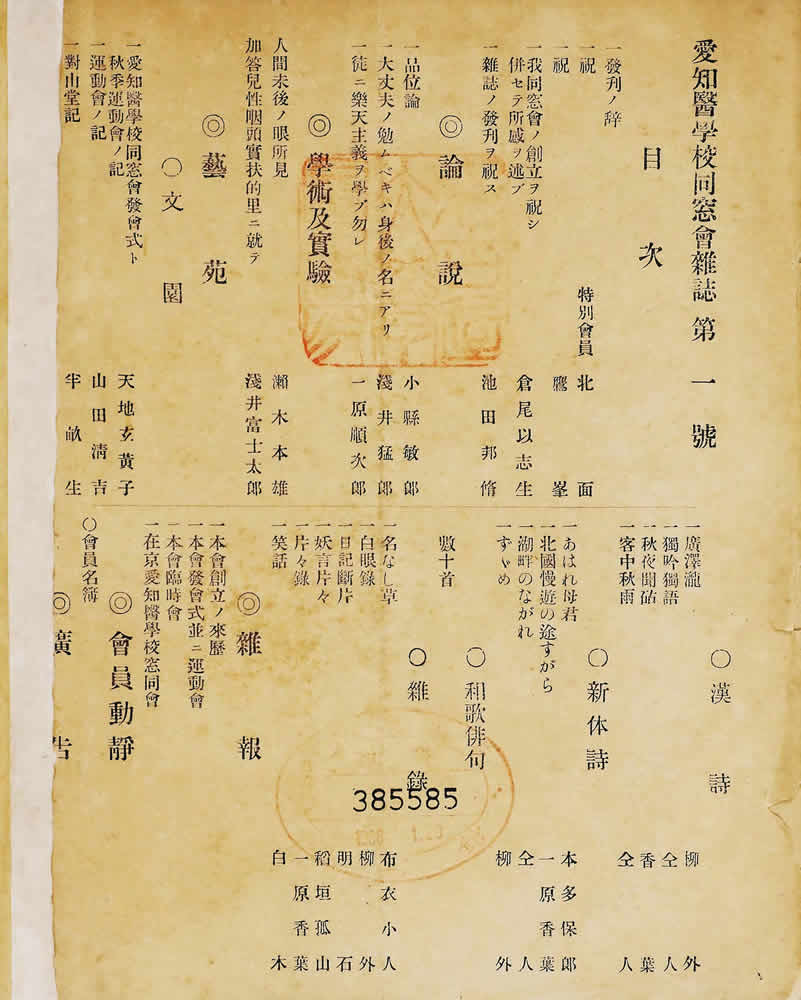 愛知醫學校同窓會雜誌第一號
目次
一發刋ノ辞
一祝 特別會員 北面
一祝 鷹峯
一我同窓會ノ創立ヲ祝シ
併セテ所感ヲ述ブ 倉尾以志生
一雜誌ノ發刋ヲ祝ス 池田邦脩
◎論說
一品位論 小縣敏郞
一大丈夫ノ勉ムベキハ身後ノ名ニアリ 淺井猛郞
一徒ニ樂天主義ヲ學ブ勿レ 一原順次郞
◎學術及實驗
人間未後ノ眼所見 瀨木本雄
加答兒性咽頭實扶的里ニ就テ 淺井富士太郞
◎藝苑
○文園
一愛知醫學校同窓會發會式ト
秋季運動會ノ記 天地玄黃子
一運動會ノ記 山田淸吉
一對山堂記 半畝生
○漢詩
一廣澤瀧 柳外
一獨吟獨語 仝人
一秋夜聞砧 香葉
一客中秋雨 仝人
○新体詩
一あはれ母君 本多保郞
一北國慢遊の途すがら 一原香葉
一湖畔のながれ 仝人
一すゞめ 柳外
○和歌俳句
數十首
○雜錄
一名なし草 布衣小人
一白眼錄 柳外
一日記斷片 明石
一妖言片々 稻垣孤山
一片々錄 一原香葉
一笑話 白木
◎雜報
一本會創立ノ來歷
一本會發會式並ニ運動會
一本會臨時會
一在京愛知醫學校窓同會
◎會員動靜
○會員名簿
◎廣告
385585